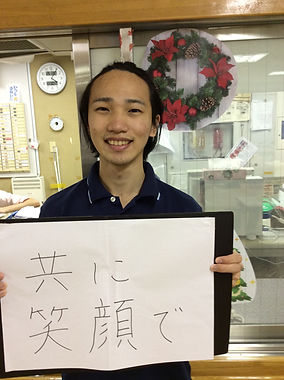 共に
笑顔で